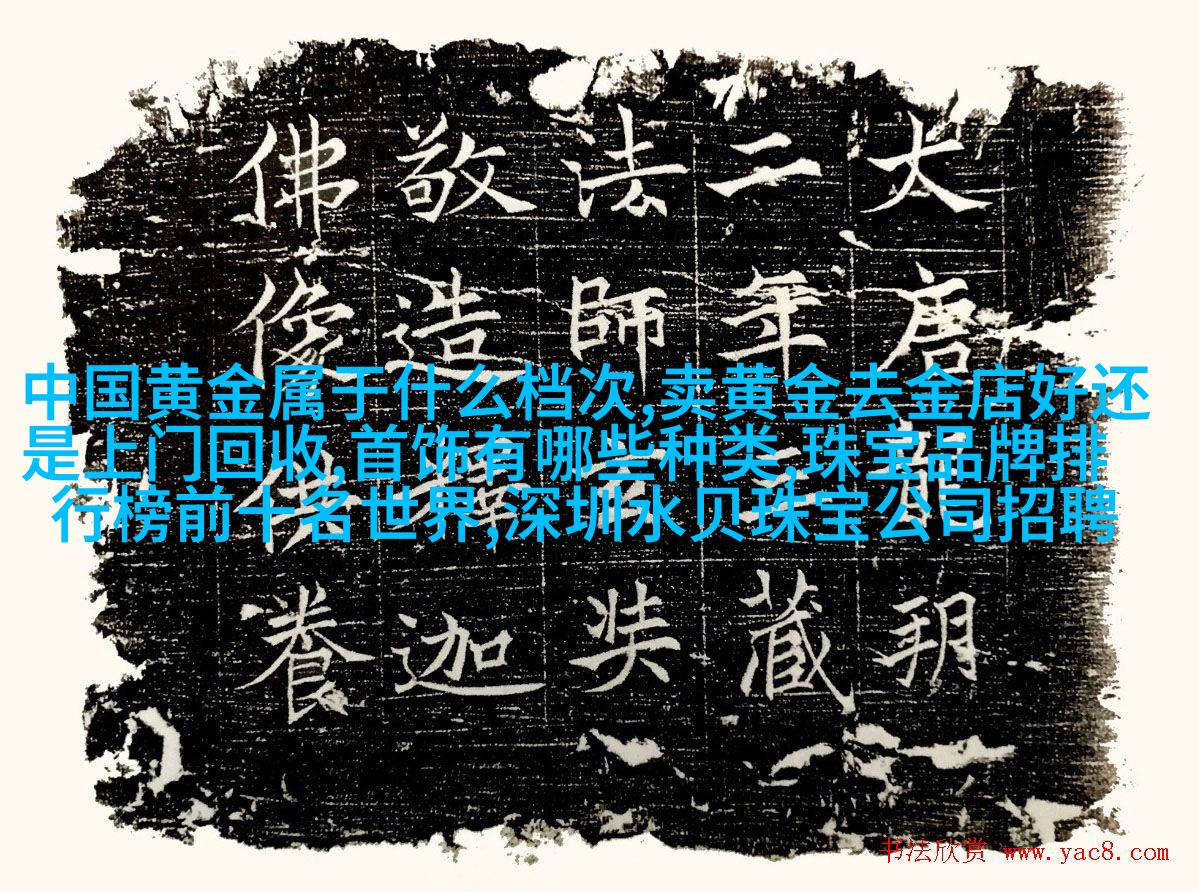 大唐龍朔
二年三藏
法師玄奘
敬造釋迦
佛像供養
中国黄金属于什么档次,卖黄金去金店好还
是上门回收,首饰有哪些种类,珠宝品牌排
行榜前十名世界,深圳水贝珠宝公司招聘
书法欣赏 www.yac8.com